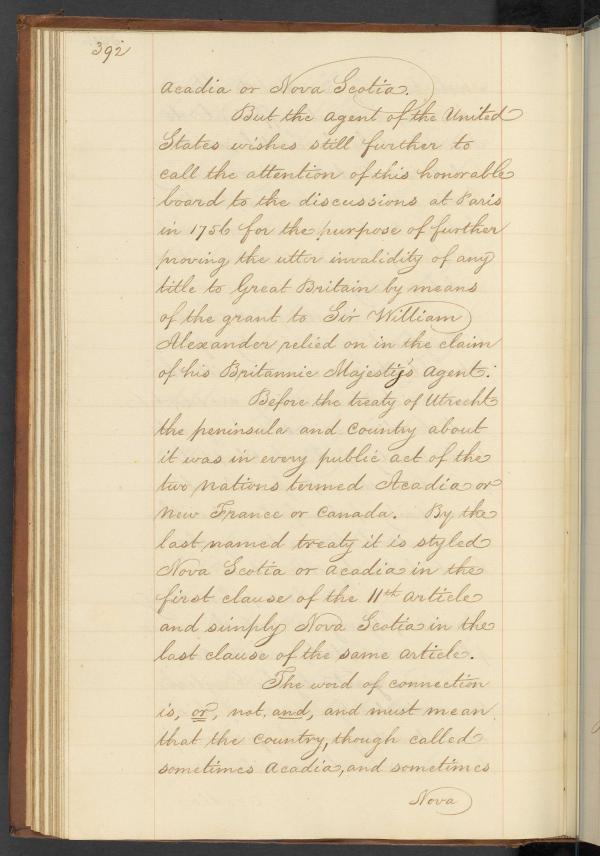 392
Acadia or Nova Scotia.
But the Agent of the United
States wishes still further to
call the attention of this honorable
board to the discussions at Paris
in 1756 for the purpose of further
proving the utter invalidity of any
title to Great Britain by means
of the grant to Sir William
Alexander relied on in the claim
of his Britannic Majesty's Agent.
Before the treaty of Utrecht
the peninsula and country about
it was in every public act of the
two nations termed Acadia or
New France or Canada. By the
last named treaty it is styled
Nova Scotia or Acadia in the
first clause of the 11th Article
and simply Nova Scotia in the
last clause of the same Article.
The word of connection
is, or, not, and, and must mean
that the Country, though called
sometimes Acadia, and sometimes
Nova